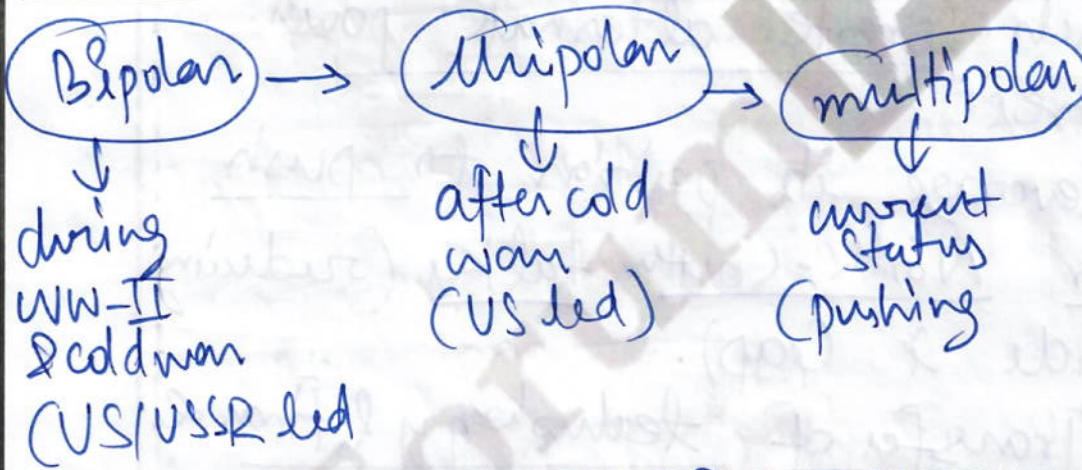 Bipolar → Unipolar → multipolar
↓ ↓ ↓
during
WW-II
& cold war
(US/USSR led
after cold
war
(US led)
current
status
(pushing